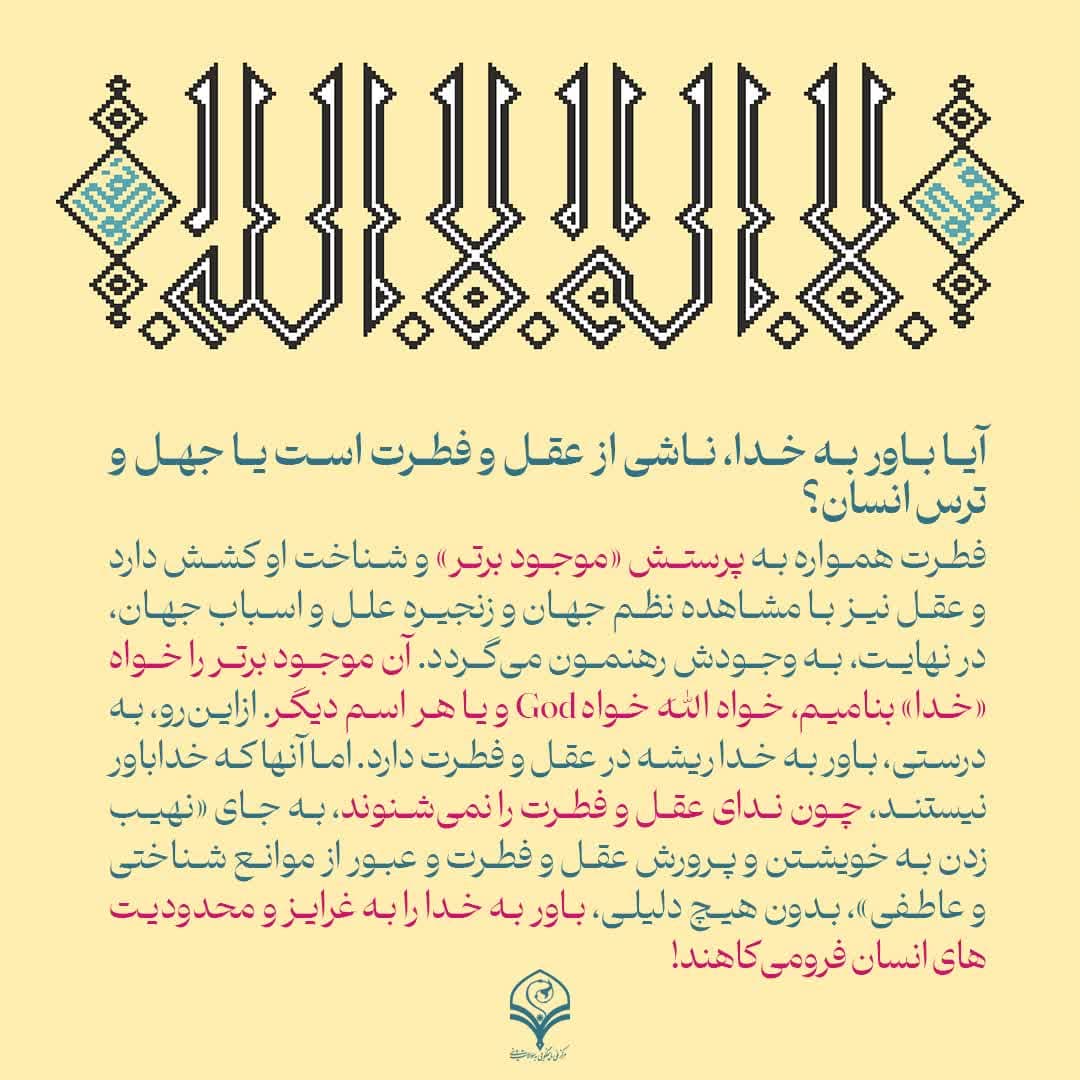 لا اله الا الله
آیا باور به خدا، ناشی از عقل و فطرت است یا جهل و
ترس انسان؟
فطرت همواره به پرستش «موجود برتر» و شناخت او کشش دارد
و عقل نیز با مشاهده نظم جهان و زنجیره علل و اسباب جهان،
در نهایت، به وجودش رهنمون می‌گردد. آن موجود برتر را خواه
«خدا» بنامیم، خواه الله خواه God و یا هر اسم دیگر. ازاین‌رو، به
درستی، باور به خدا ریشه در عقل و فطرت دارد. اما آنها که خداباور
نیستند، چون ندای عقل و فطرت را نمی‌شنوند، به جای «نهیب
زدن به خویشتن و پرورش عقل و فطرت و عبور از موانع شناختی
و عاطفی»، بدون هیچ دلیلی، باور به خدا را به غرایز و محدودیت
های انسان فرومی‌کاهند!